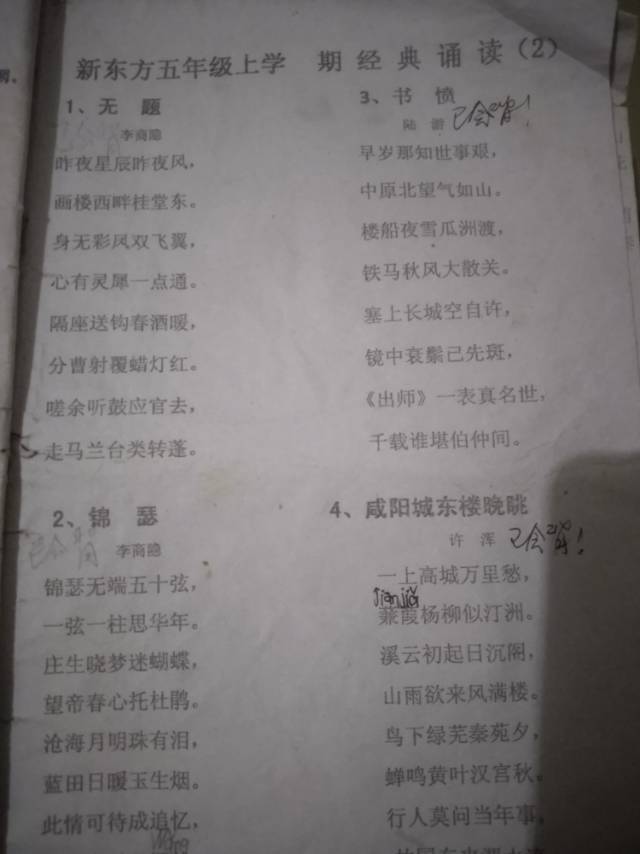 新东方五年级上学 期经典诵读（2）
1、无 题
已会背
李商隐
昨夜星辰昨夜风，
画楼西畔桂堂东。
身无彩凤双飞翼，
心有灵犀一点通。
隔座送钩春酒暖，
分曹射覆蜡灯红。
嗟余听鼓应官去，
走马兰台类转蓬。
2、锦 瑟
已会背
李商隐
锦瑟无端五十弦，
一弦一柱思华年。
庄生晓梦迷蝴蝶，
望帝春心托杜鹃。
沧海月明珠有泪，
蓝田日暖玉生烟。
此情可待成追忆，
3、书 愤
陆 游 已会背！
早岁那知世事艰，
中原北望气如山。
楼船夜雪瓜洲渡，
铁马秋风大散关。
塞上长城空自许，
镜中衰鬓己先斑，
《出师》一表真名世，
千载谁堪伯仲间。
4、咸阳城东楼晚眺
许 浑 已会背！
一上高城万里愁，
jiānjiā
蒹葭杨柳似汀洲。
溪云初起日沉阁，
山雨欲来风满楼。
鸟下绿芜秦苑夕，
蝉鸣黄叶汉宫秋。
行人莫问当年事，